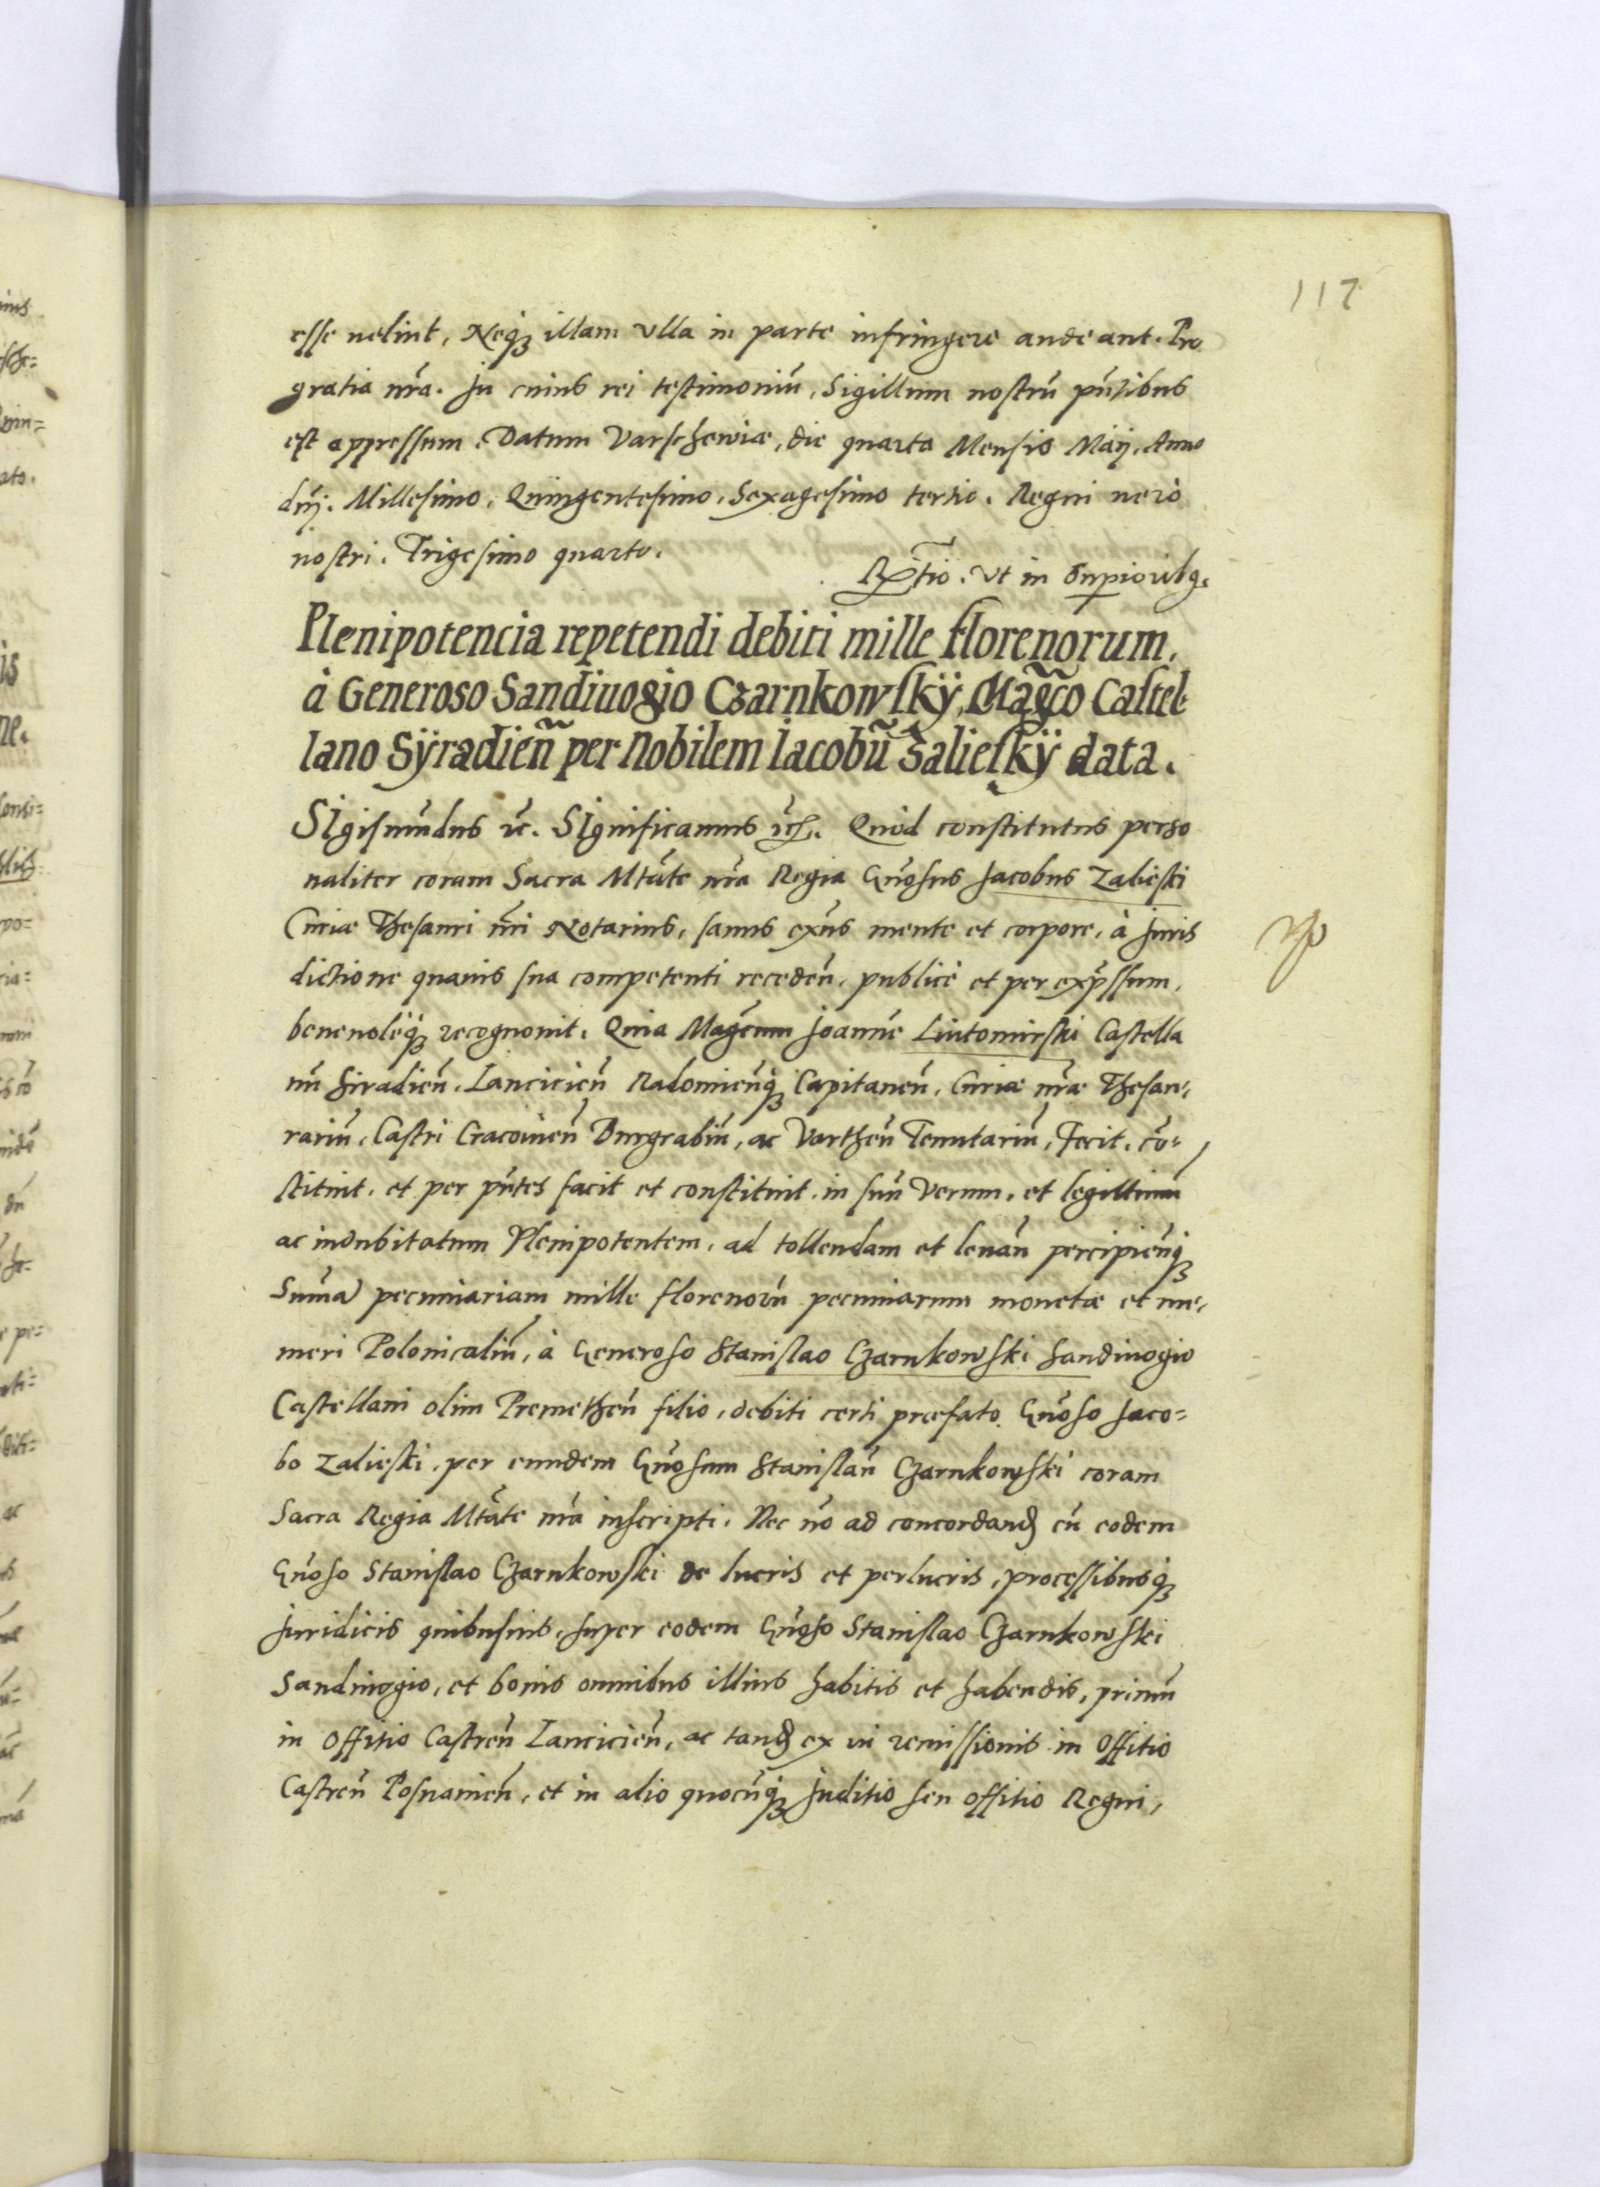 117
esse uelint, Neq3 illam vlla in parte infringere audeant. Pro
gratia nr̃a. In cuius rei testimoniũ, Sigillum nostrũ pñtibus
est appressum. Datum Varscheuiæ, die quarta Mensis Maij. Anno
dñj. Millesimo, Quingentesimo, Sexagesimo tertio. Regni uerò
nostri. Trigesimo quarto.
Rtio. vt in supioribq.
Plenipotencia repetendi debiti mille florenorum,
à Generoso Sandiuogio Czarnkowskÿ, Magc̃o Castel-
lano Sÿradieñ per Nobilem Iacobũ Salieskÿ data.
Sigismũdus ꝛc. Significamus ꝛc̃. Quòd constitutus perso
naliter coram Sacra Mtãte nr̃a Regia Gñosus Jacobus Zalieski
Curiæ Thesauri nr̃i Notarius, sanus exñs mente et corpore, à Juris
dictione quauis sua competenti recedeñ, publicè et per exp̃ssum,
beneuolèq3 recognouit. Quia Magcum Joannẽ Liutomirski Castella
nũ Siradieñ, Lancicieñ Radomieñq3 Capitaneũ, Curiæ nr̃æ Thesau-
rariũ, Castri Cracouieñ Burgrabiũ, ac Vartheñ Tenutariũ, Fecit, cõ-
stituit, et per pñtes facit et constituit, in suũ verum, et legittimũ
ac indubitatum Plenipotentem, ad tollendam et leuañ percipieñq3
Sum̃ã pecuniariam mille florenorũ pecuniarum monetæ et nu-
meri Polonicaliũ, à Generoso Stanislao Czarnkowski Sandiuogio
Castellani olim Premetheñ filio, debiti certi præfato Gñoso Jaco-
bo Zalieski, per eundem Gñosum Stanislaũ Czarnkowski coram
Sacra Regia Mtãte nr̃a inscripti. Nec nõ ad concordanđ cũ eodem
Gñoso Stanislao Czarnkowski de lucris et perlucris, processibusq3
Juridicis quibusuis, super eodem Gñoso Stanislao Czarnkowski
Sandiuogio, et bonis omnibus illius habitis et habendis, primũ
in Offitio Castreñ Lancicieñ, ac tanđ ex ui remissionis in Offitio
Castreñ Posnanieñ, et in alio quocũq3 Juditio seu offitio Regni,